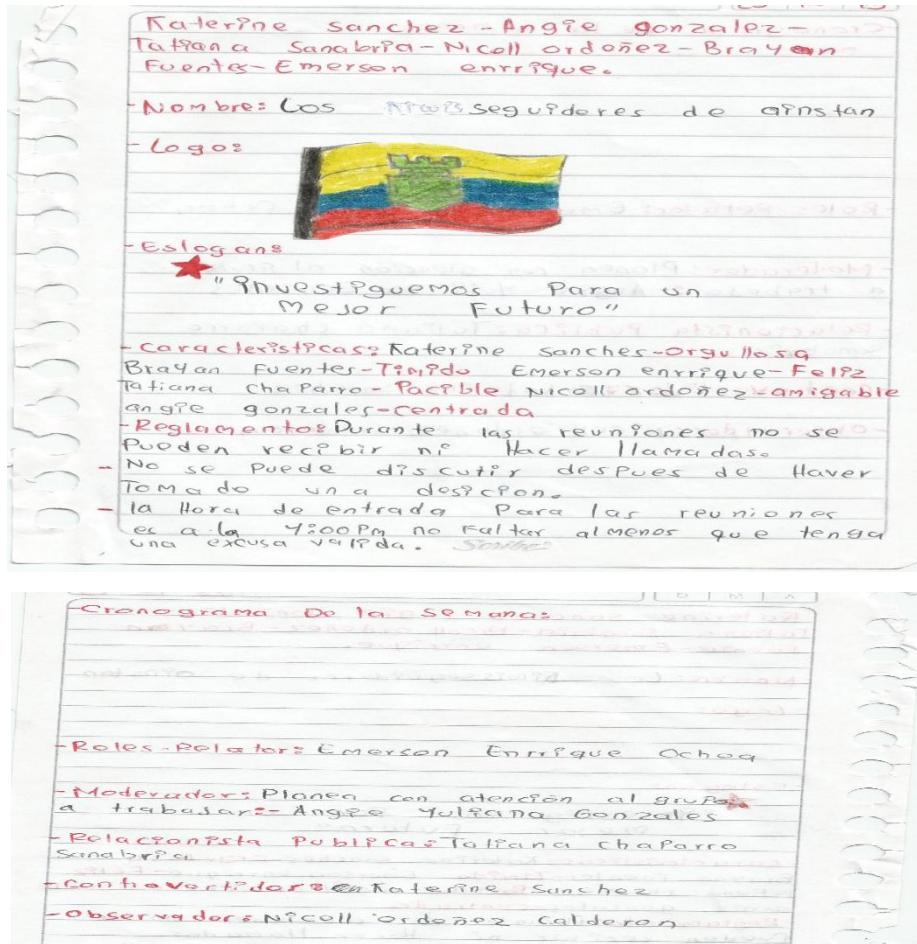 Katerine Sanchez - Angie gonzalez -
Tatiana Sanabria - Nicoll ordoñez - Brayan
Fuentes - Emerson enrrique.
- Nombre: Los seguidores de ainstan
- Logo:
- Eslogan:
"investiguemos Para un
Mejor Futuro"
- Caracteristicas: Katerine Sanches - Orgullosa
Brayan Fuentes - Timido Emerson enrrique - Feliz
Tatiana Chaparro - Pacible Nicoll ordoñez - amigable
angie gonzales - centrada
- Reglamento: Durante las reuniones no se
Pueden recibir ni Hacer llamadas.
- No se puede discutir despues de Haver
Tomado una desicion.
- la Hora de entrada Para las reuniones
es a la 7:00 Pm no Faltar almenos que tenga
una excusa valida. Scribe
- Cronograma De la semana:
- Roles - Relator: Emerson Enrrique Ochoa
- Moderador: Planea con atención al grupo
a trabajar: - Angie Yuliana Gonzales
- Relacionista Publica: Tatiana Chaparro
Sanabria
- Controvertidor: Katerine Sanchez
- Observador: Nicoll Ordoñez Calderon